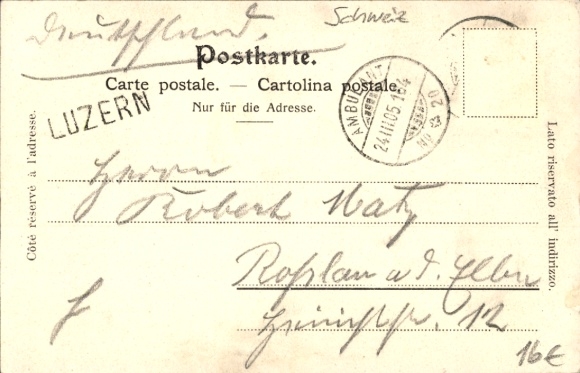 Deutschland.
Schweiz
Postkarte.
Carte postale. — Cartolina postale.
Nur für die Adresse.
LUZERN
AMBULANT
24 III 05 164
No 20
Côté réservé à l'adresse.
Lato riservato all' indirizzo.
Herrn
Robert Matz
Roßlau a. d. Elbe
12
16€